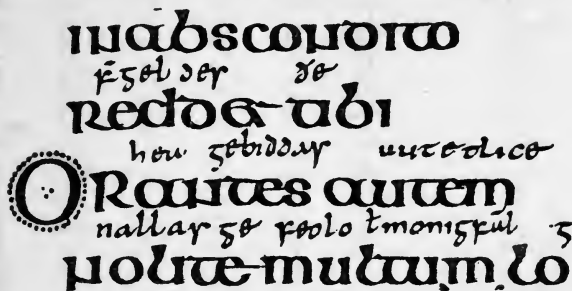 inabscondito
f̄gel des ðe
reddet tibi
hew gebiddas uutedlice
ORantes autem
nallas ge feolo ł monigful g
nolite multum lo